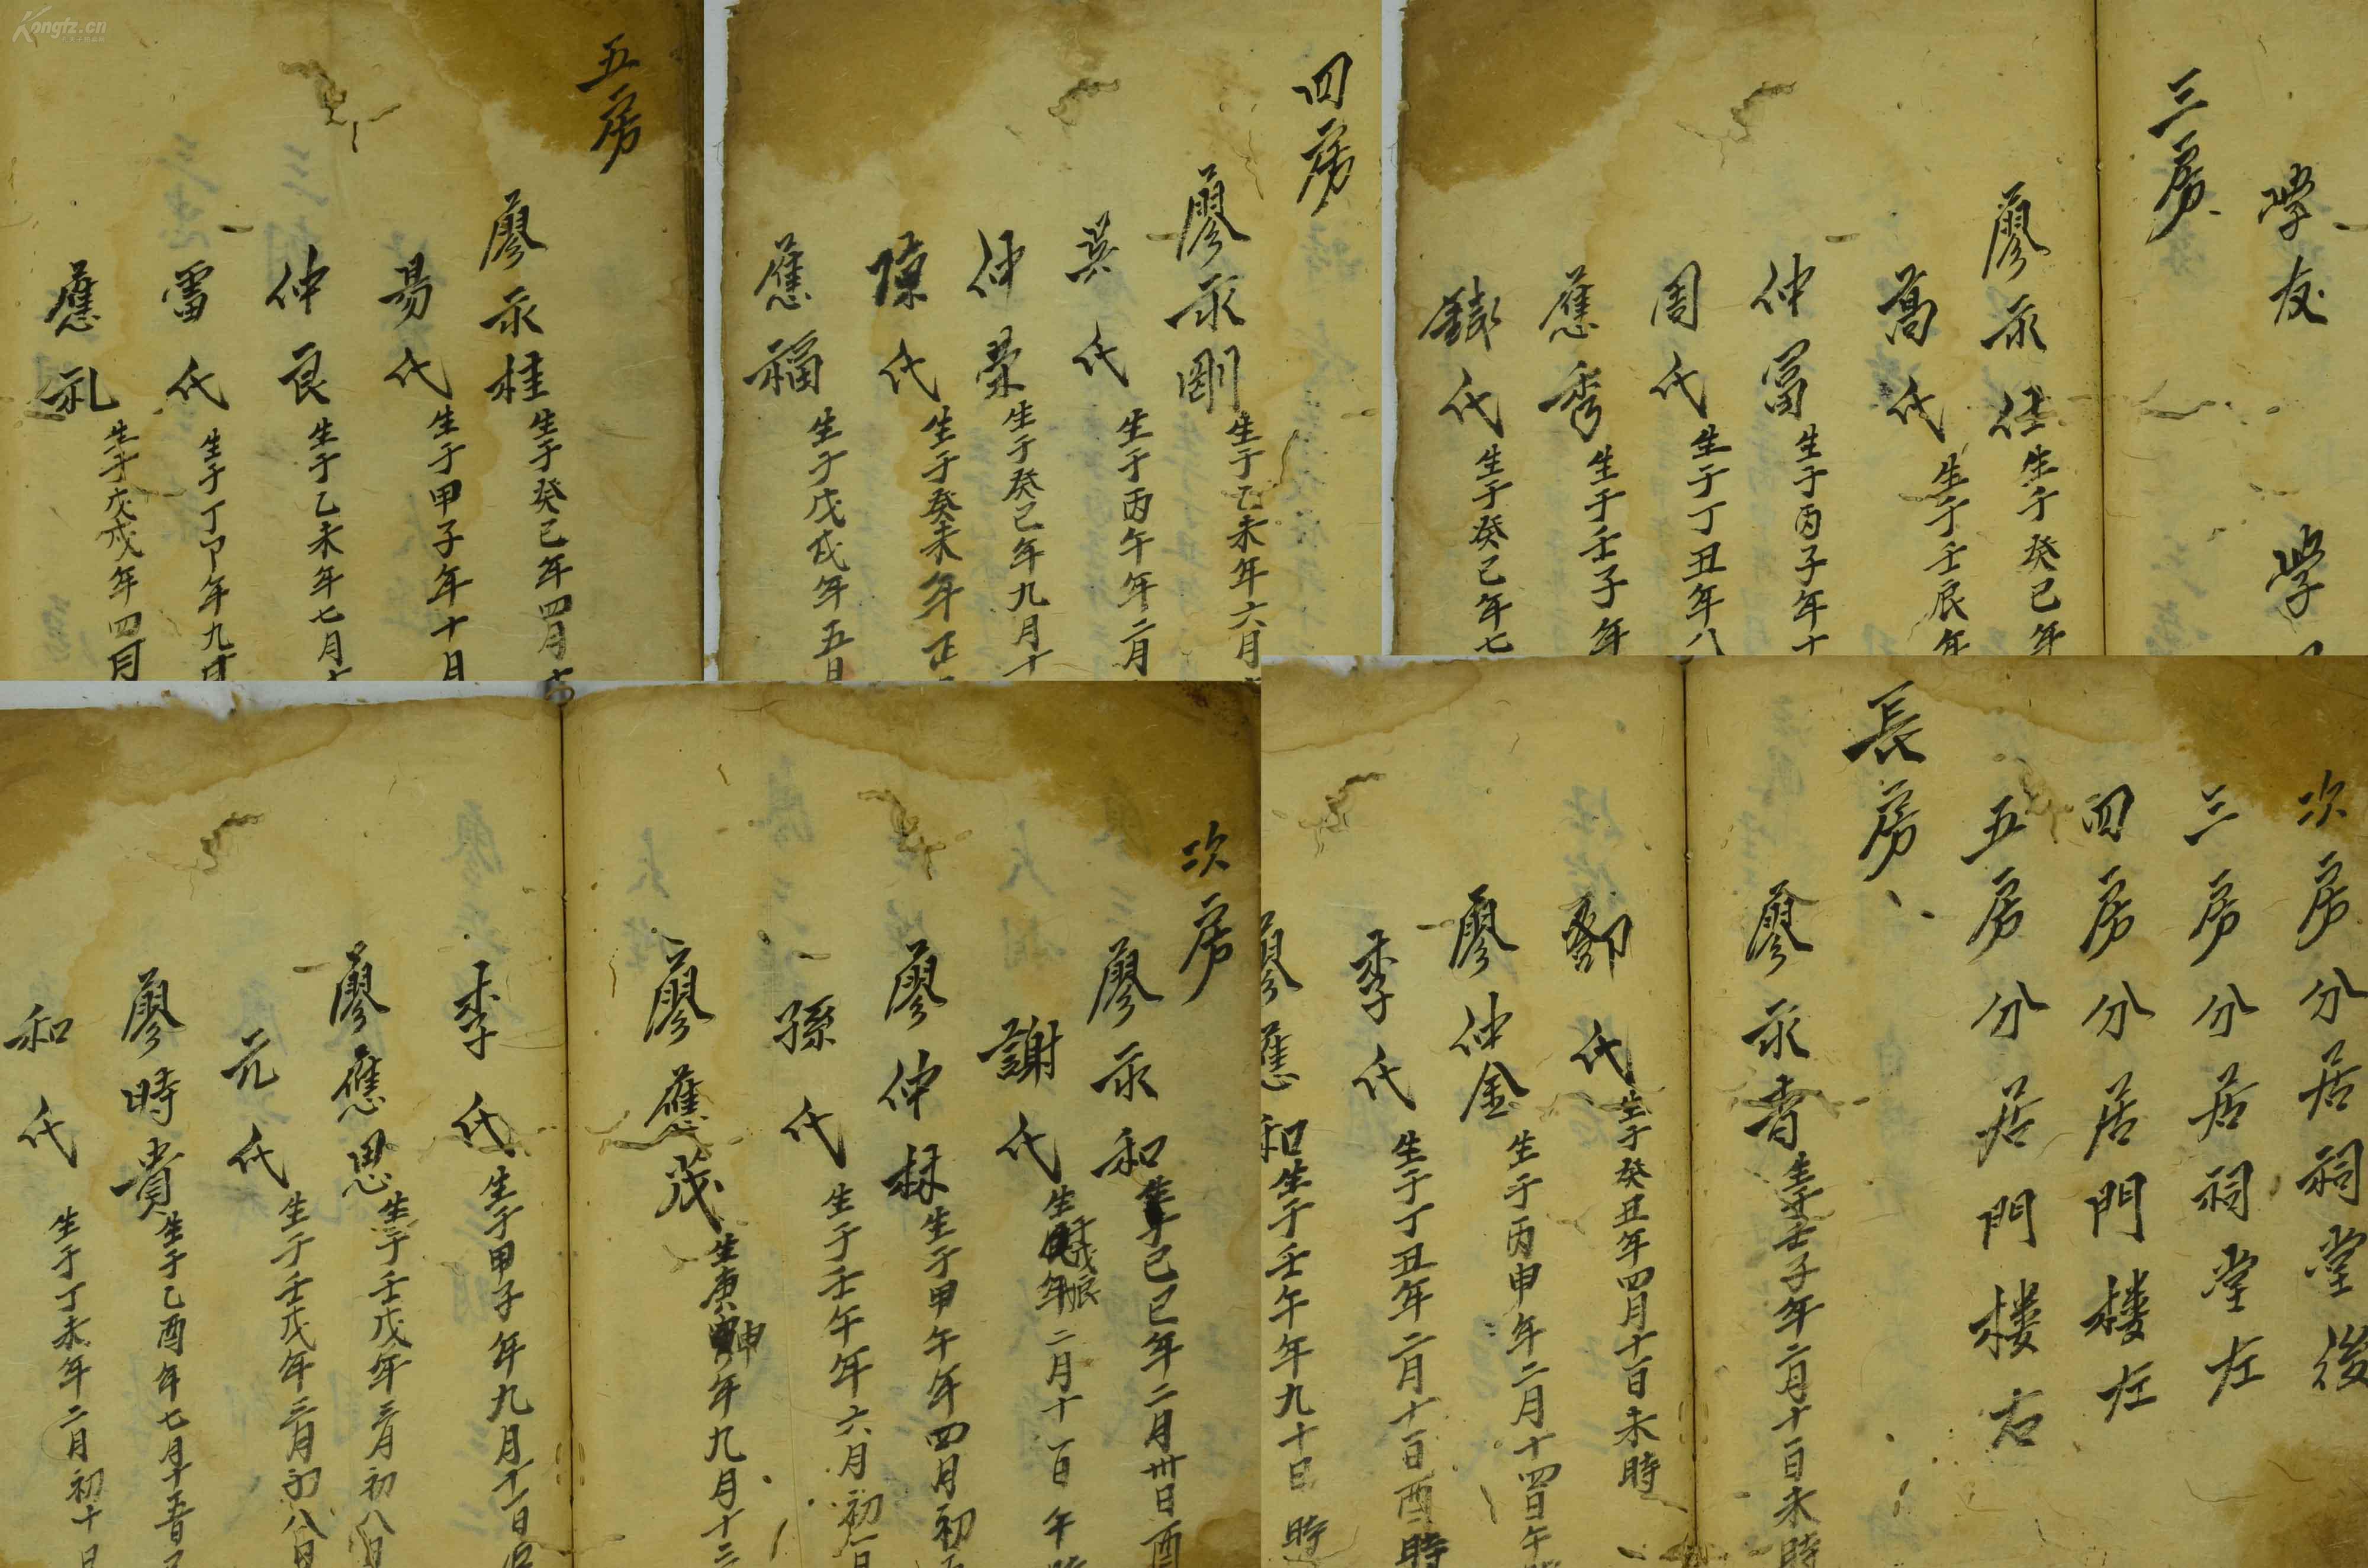 Kongfz.cn
五房
廖永桂生于癸巳年四月十
易氏生于甲子年十月
仲良生于乙未年七月十
雷氏生于丁卯年九月
應礼生于戊戌年四月
四房
廖永剛生于乙未年六月
英氏生于丙午年二月
仲榮生于癸巳年九月十
陳氏生于癸未年正
應福生于戊戌年五月
學友 學
三房
廖永仕生于癸巳年
萬氏生于壬辰年
仲富生于丙子年十
周氏生于丁丑年八
應秀生于壬子年
錢氏生于癸巳年七
次房分居祠堂後
三房分居祠堂左
四房分居門楼左
五房分居門楼右
長房
廖永青生于壬子年二月十一日未時
鄧氏生于癸丑年四月十一日未時
廖仲金生于丙申年二月十四日午
李氏生于丁丑年二月十一日酉時
廖應和生于壬午年九十日 時
次房
廖永和生于己巳年二月卅日酉
謝氏生于戊辰年二月十一日午時
廖仲林生于甲午年四月初
孫氏生于壬午年六月初一日
廖應茂生庚申年九月十三
李氏生于甲子年九月十一日
廖應思生于壬戊年三月初八日
元氏生于壬戊年三月初八日
廖時貴生于乙酉年七月十五日
和氏生于丁未年二月初十日